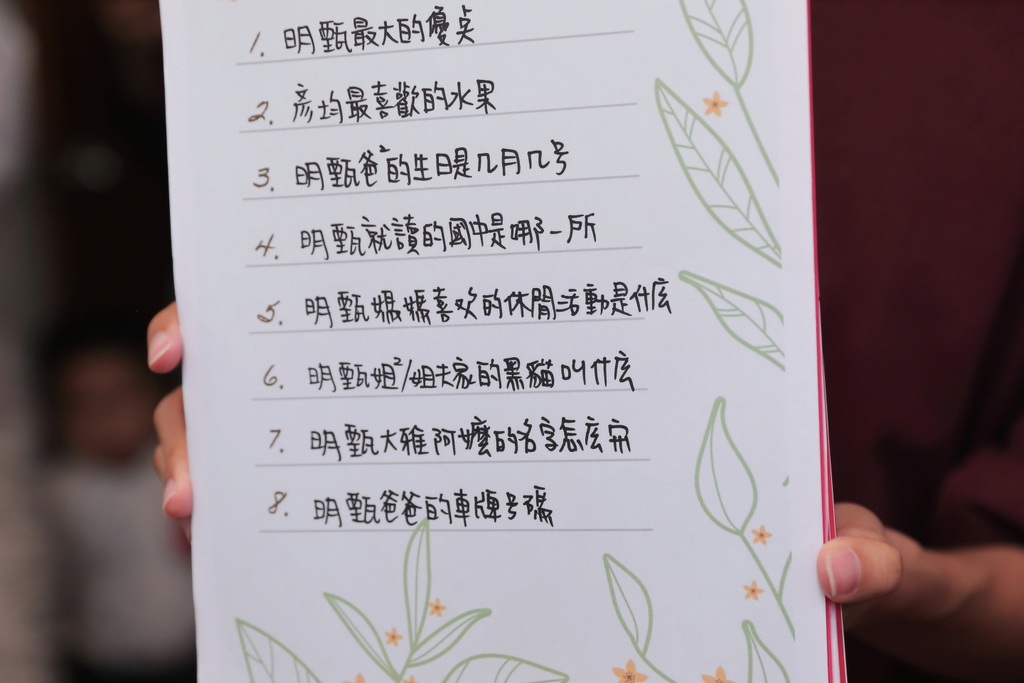 1. 明甄最大的優点
2. 彥均最喜歡的水果
3. 明甄爸²的生日是几月几号
4. 明甄就讀的國中是哪一所
5. 明甄媽媽喜欢的休閒活動是什庅
6. 明甄姐²/姐夫家的黑貓叫什庅
7. 明甄大雅阿嬤的名字怎庅寫
8. 明甄爸爸的車牌号碼